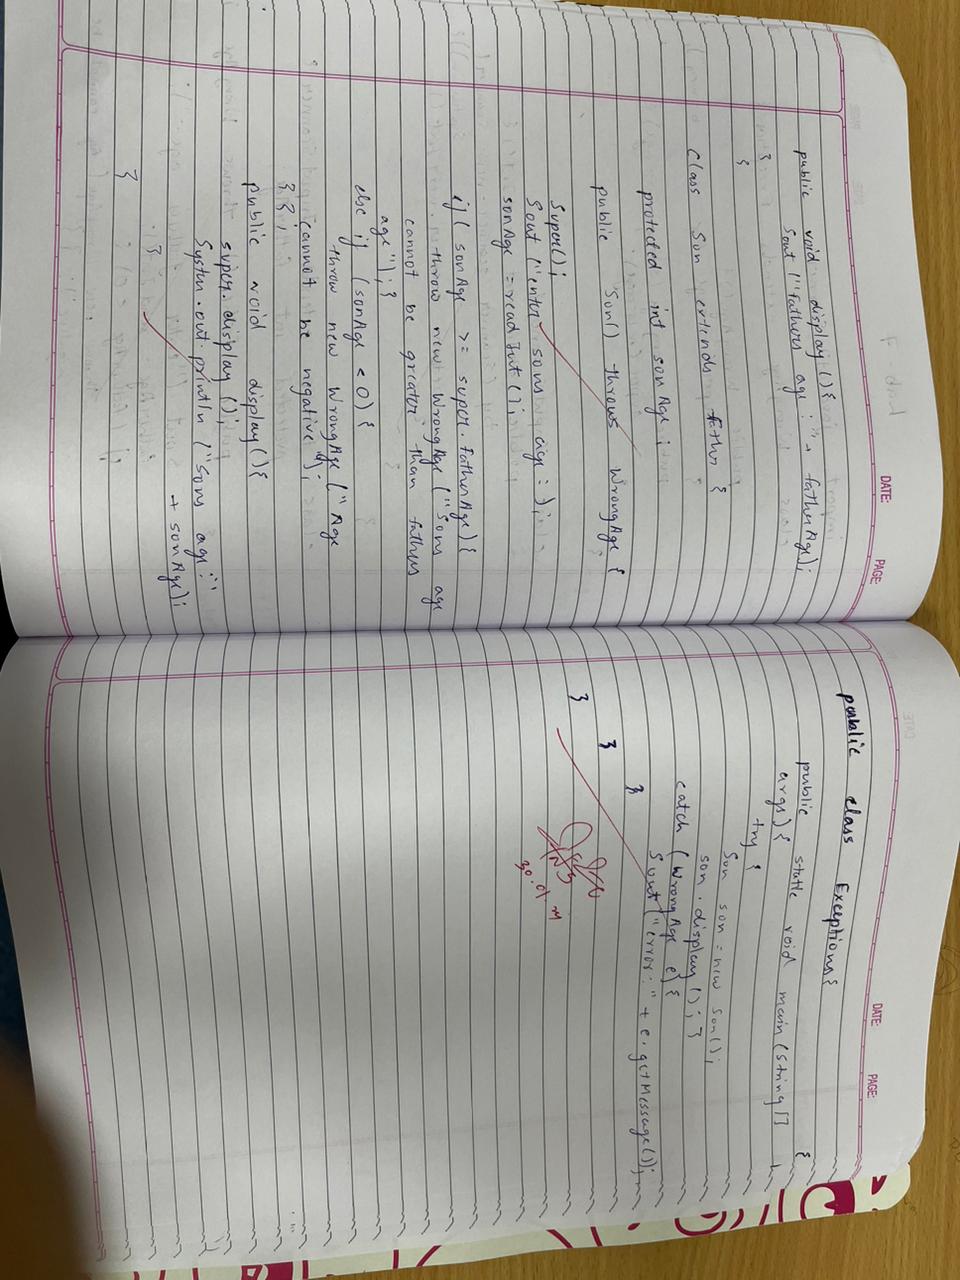 DATE: PAGE:
public void display(){
Sout ("fathers age : " + fatherAge);
}
}
Class Son extends fathr {
protected int sonAge ;
public Son() throws WrongAge {
Super();
Sout ("enter sons age : );
sonAge = readInt();
if ( sonAge >= super.fatherAge){
throw new WrongAge ("Sons age
cannot be greater than fathers
age"); }
else if (sonAge < 0) {
throw new WrongAge ("Age
cannot be negative);
} }
public void display(){
super.display();
System.out.println ("Sons age:"
+ sonAge);
}
}
DATE: PAGE:
public class Exceptions{
public static void main (string []
args) {
try {
Son son = new son();
son.display(); }
catch (WrongAge e) {
Sout ("error: " + e.getMessage());
}
}
}